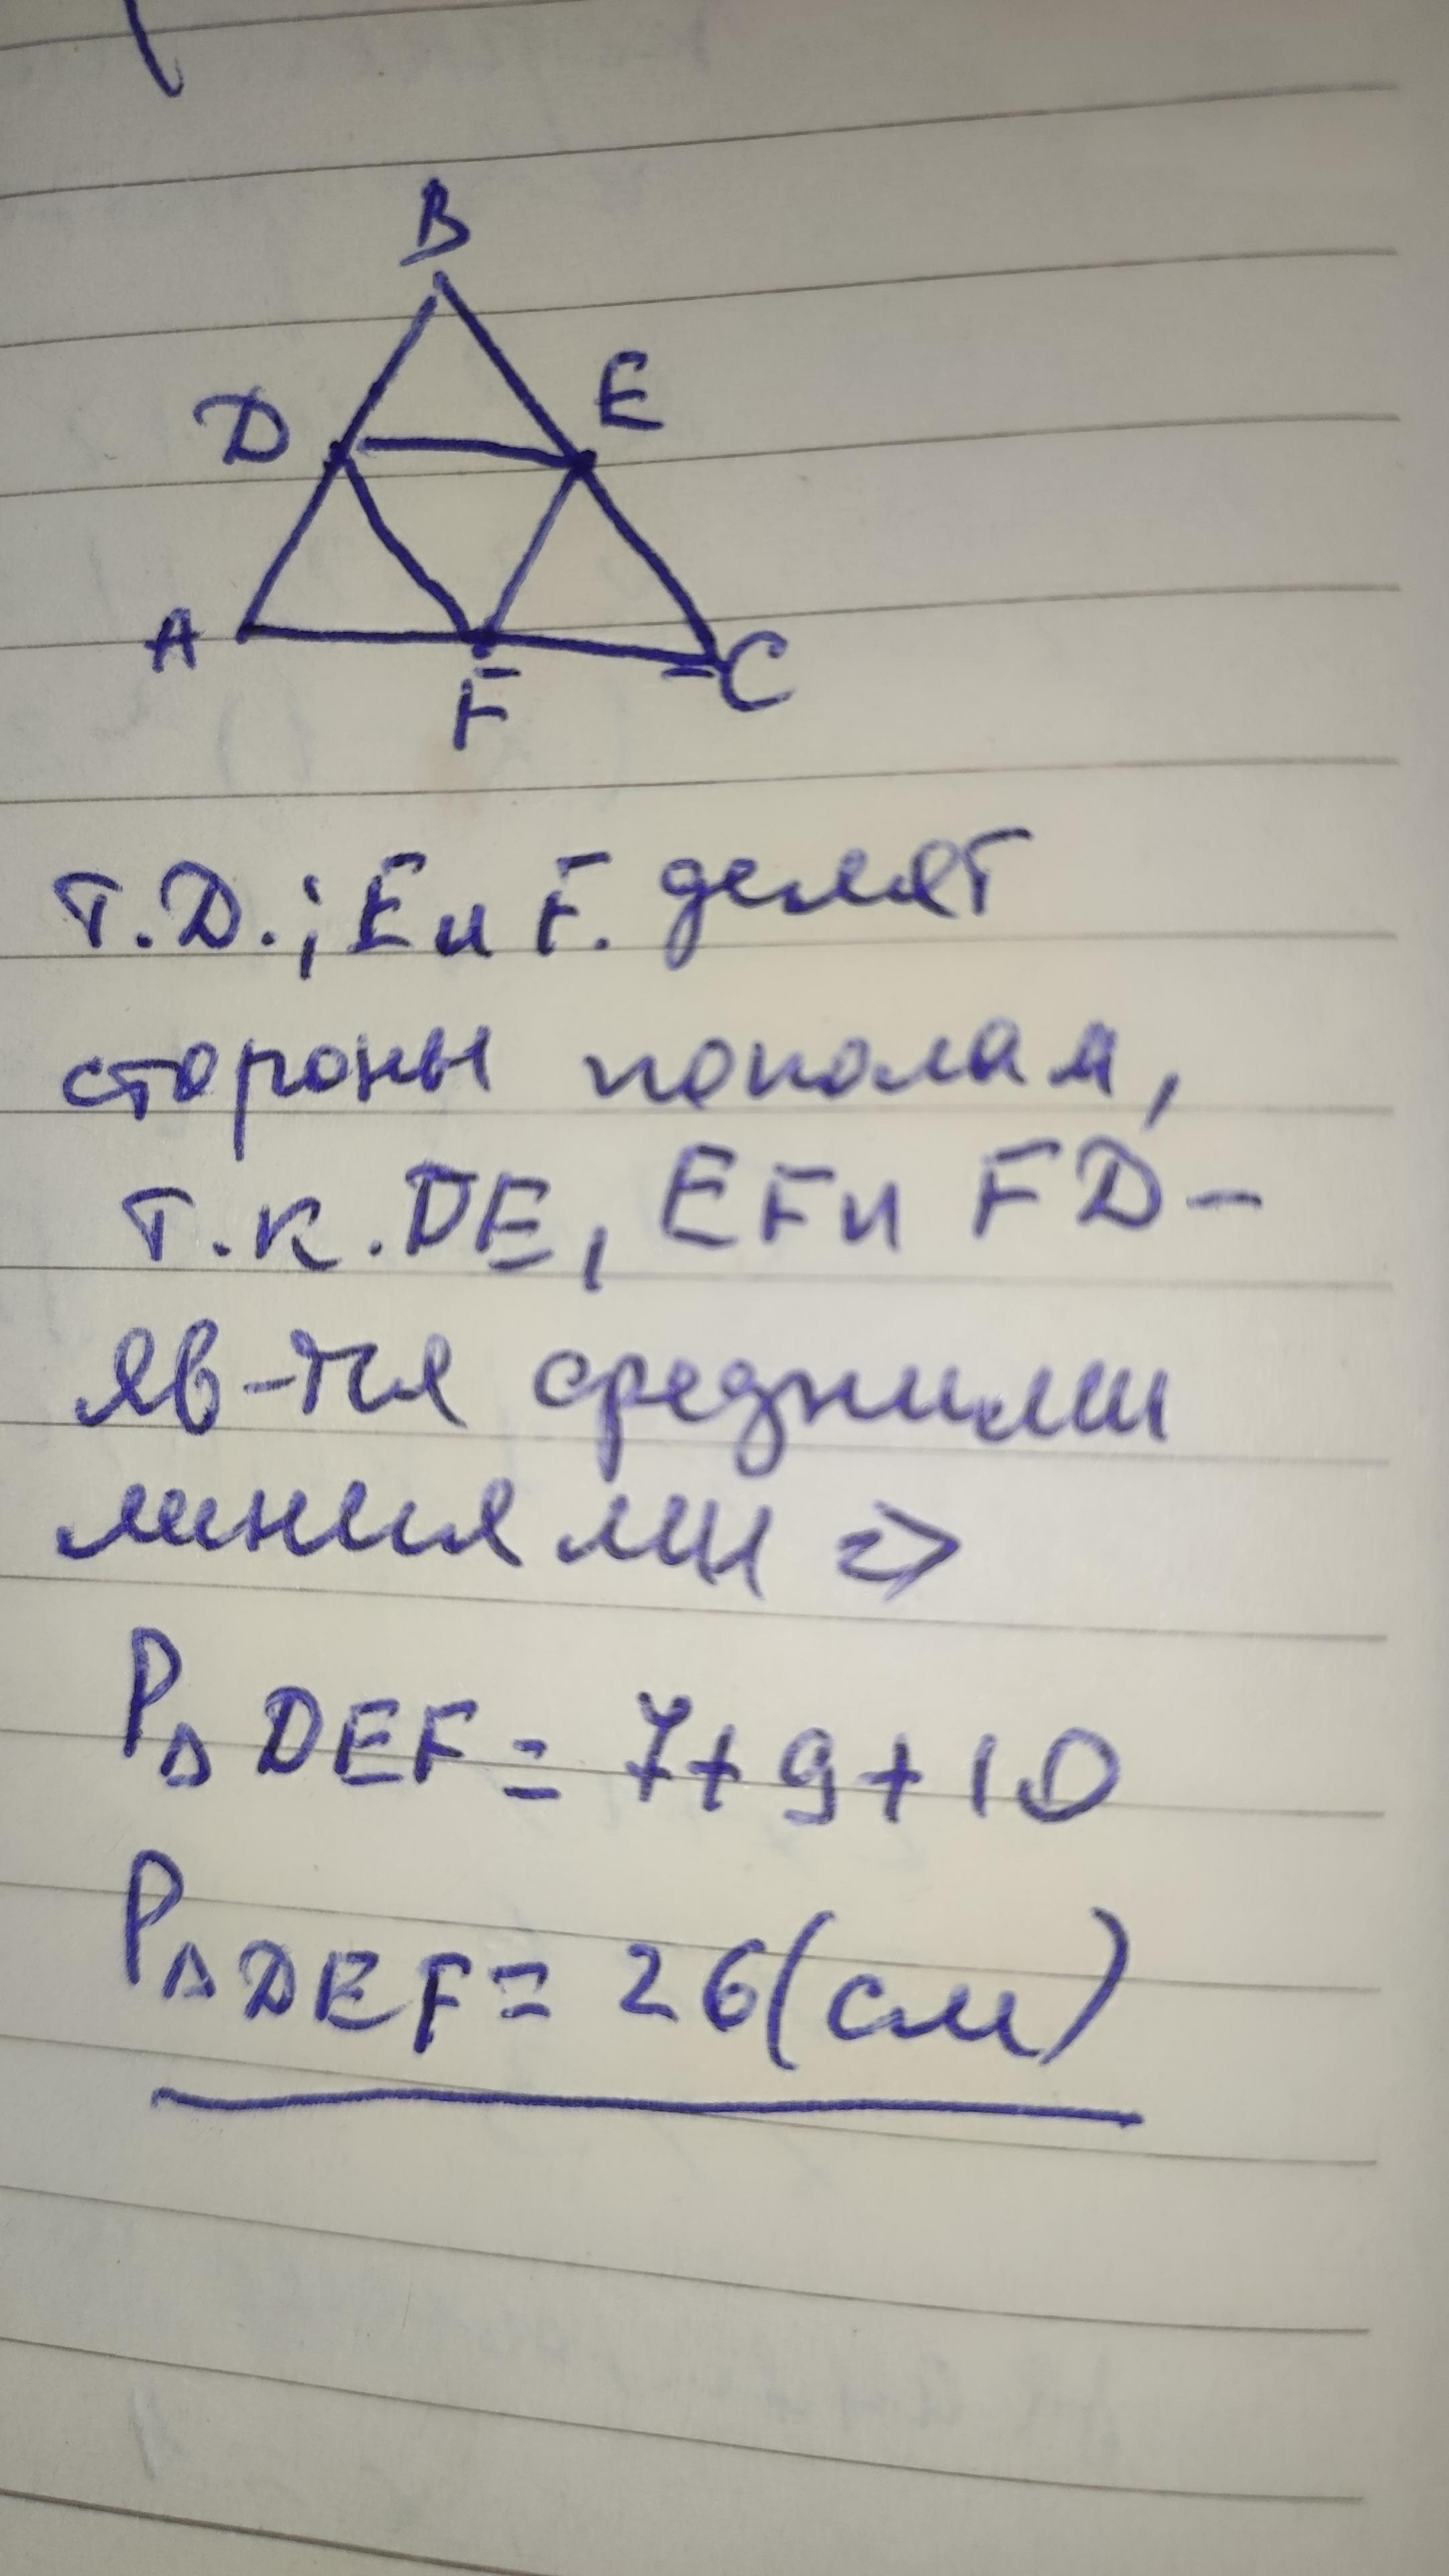 B
D
E
A
F
C
т.D.; E и F. делят
стороны пополам,
т.к. DE, EF и FD -
яв-тся средними
линиями =>
P△DEF = 7+9+10
P△DEF = 26(см)